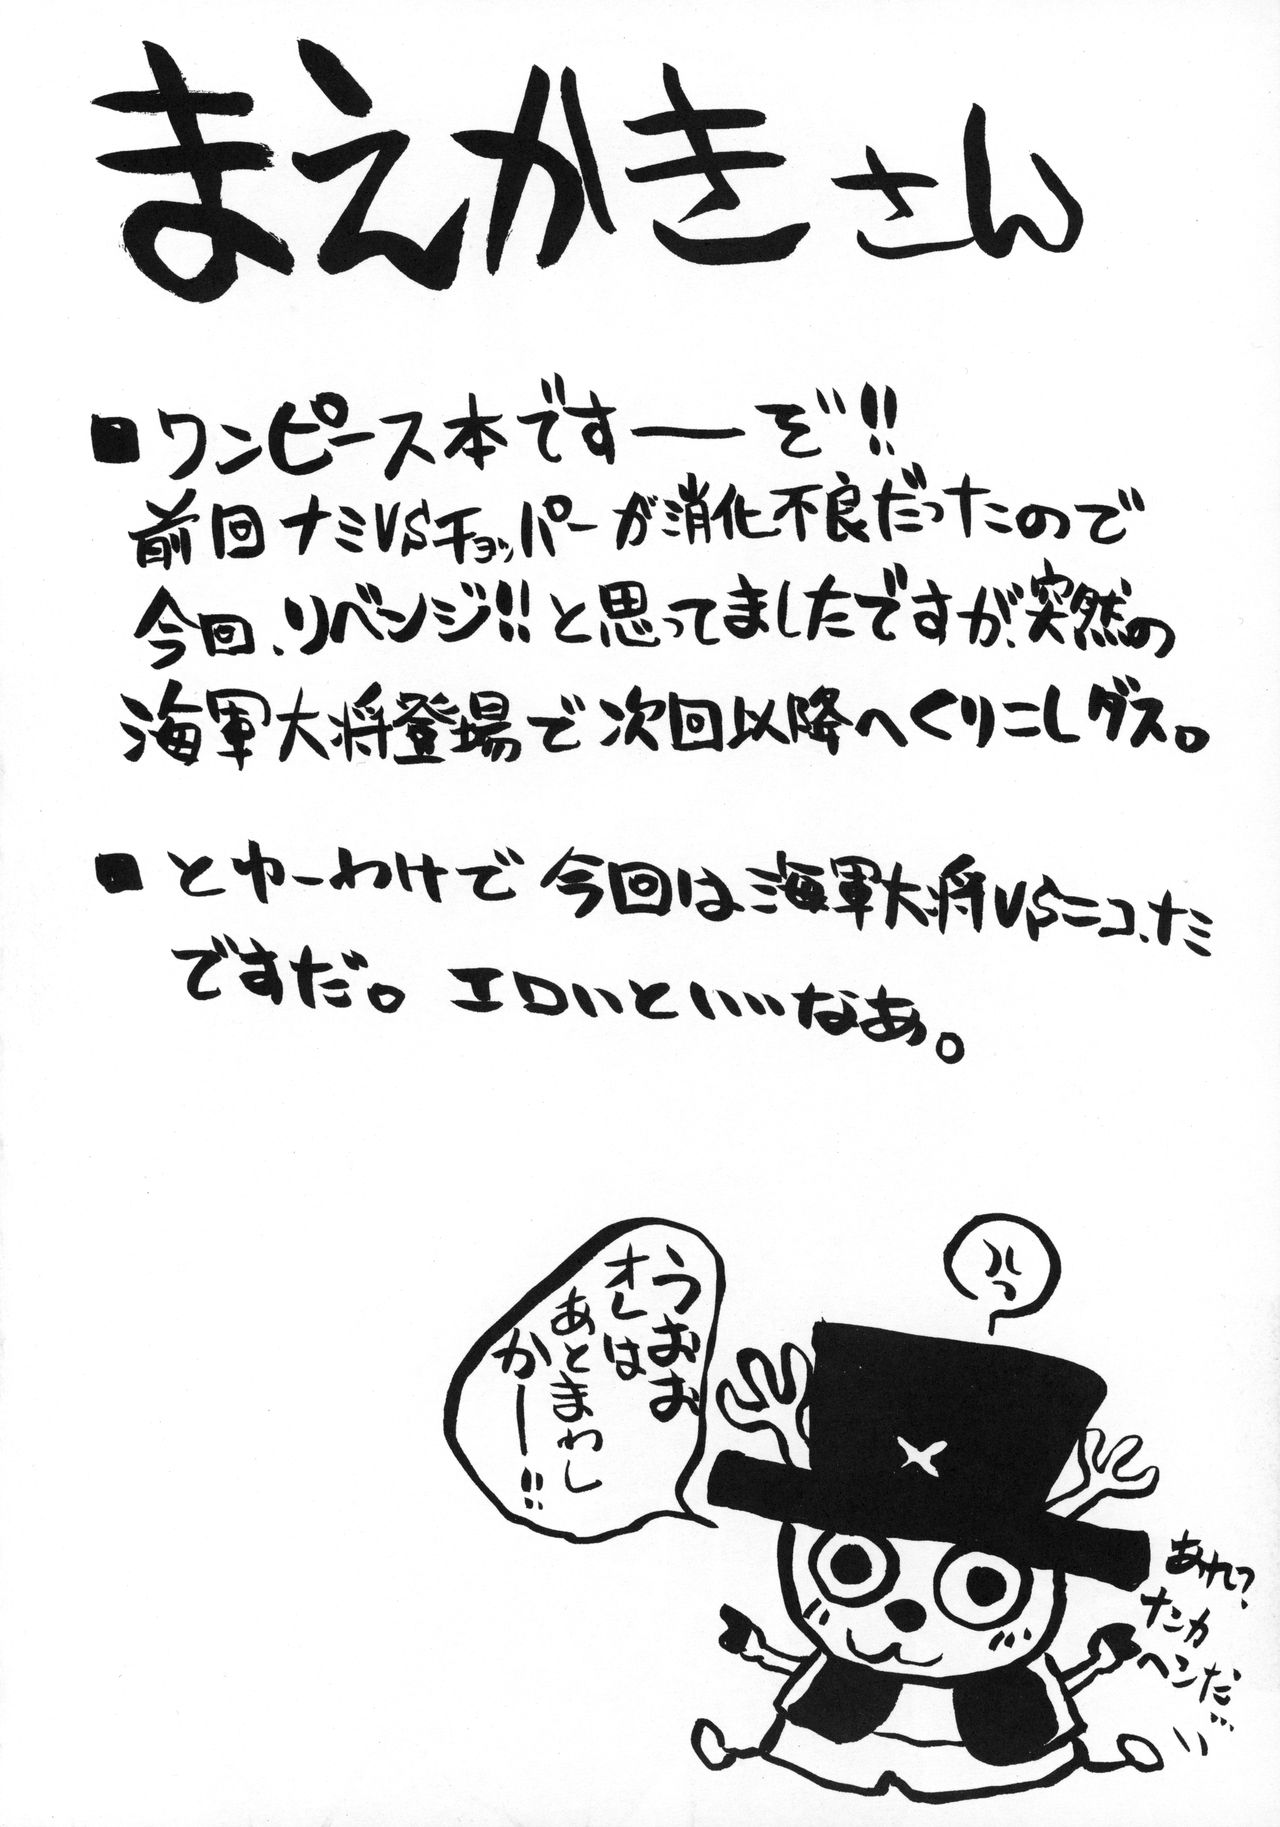 まえかきさん
■ワンピース本ですーーぞ!!
前回ナミVSチョッパーが消化不良だったので
今回、リベンジ!!と思ってましたですが、突然の
海軍大将登場で次回以降へくりこしダス。
■とゆーわけで今回は海軍大将VSニコ、ナミ
ですだ。エロいといいなあ。
うおお
オレは
あとまわし
かー!!
あれ?
ナンカ
ヘンだ…